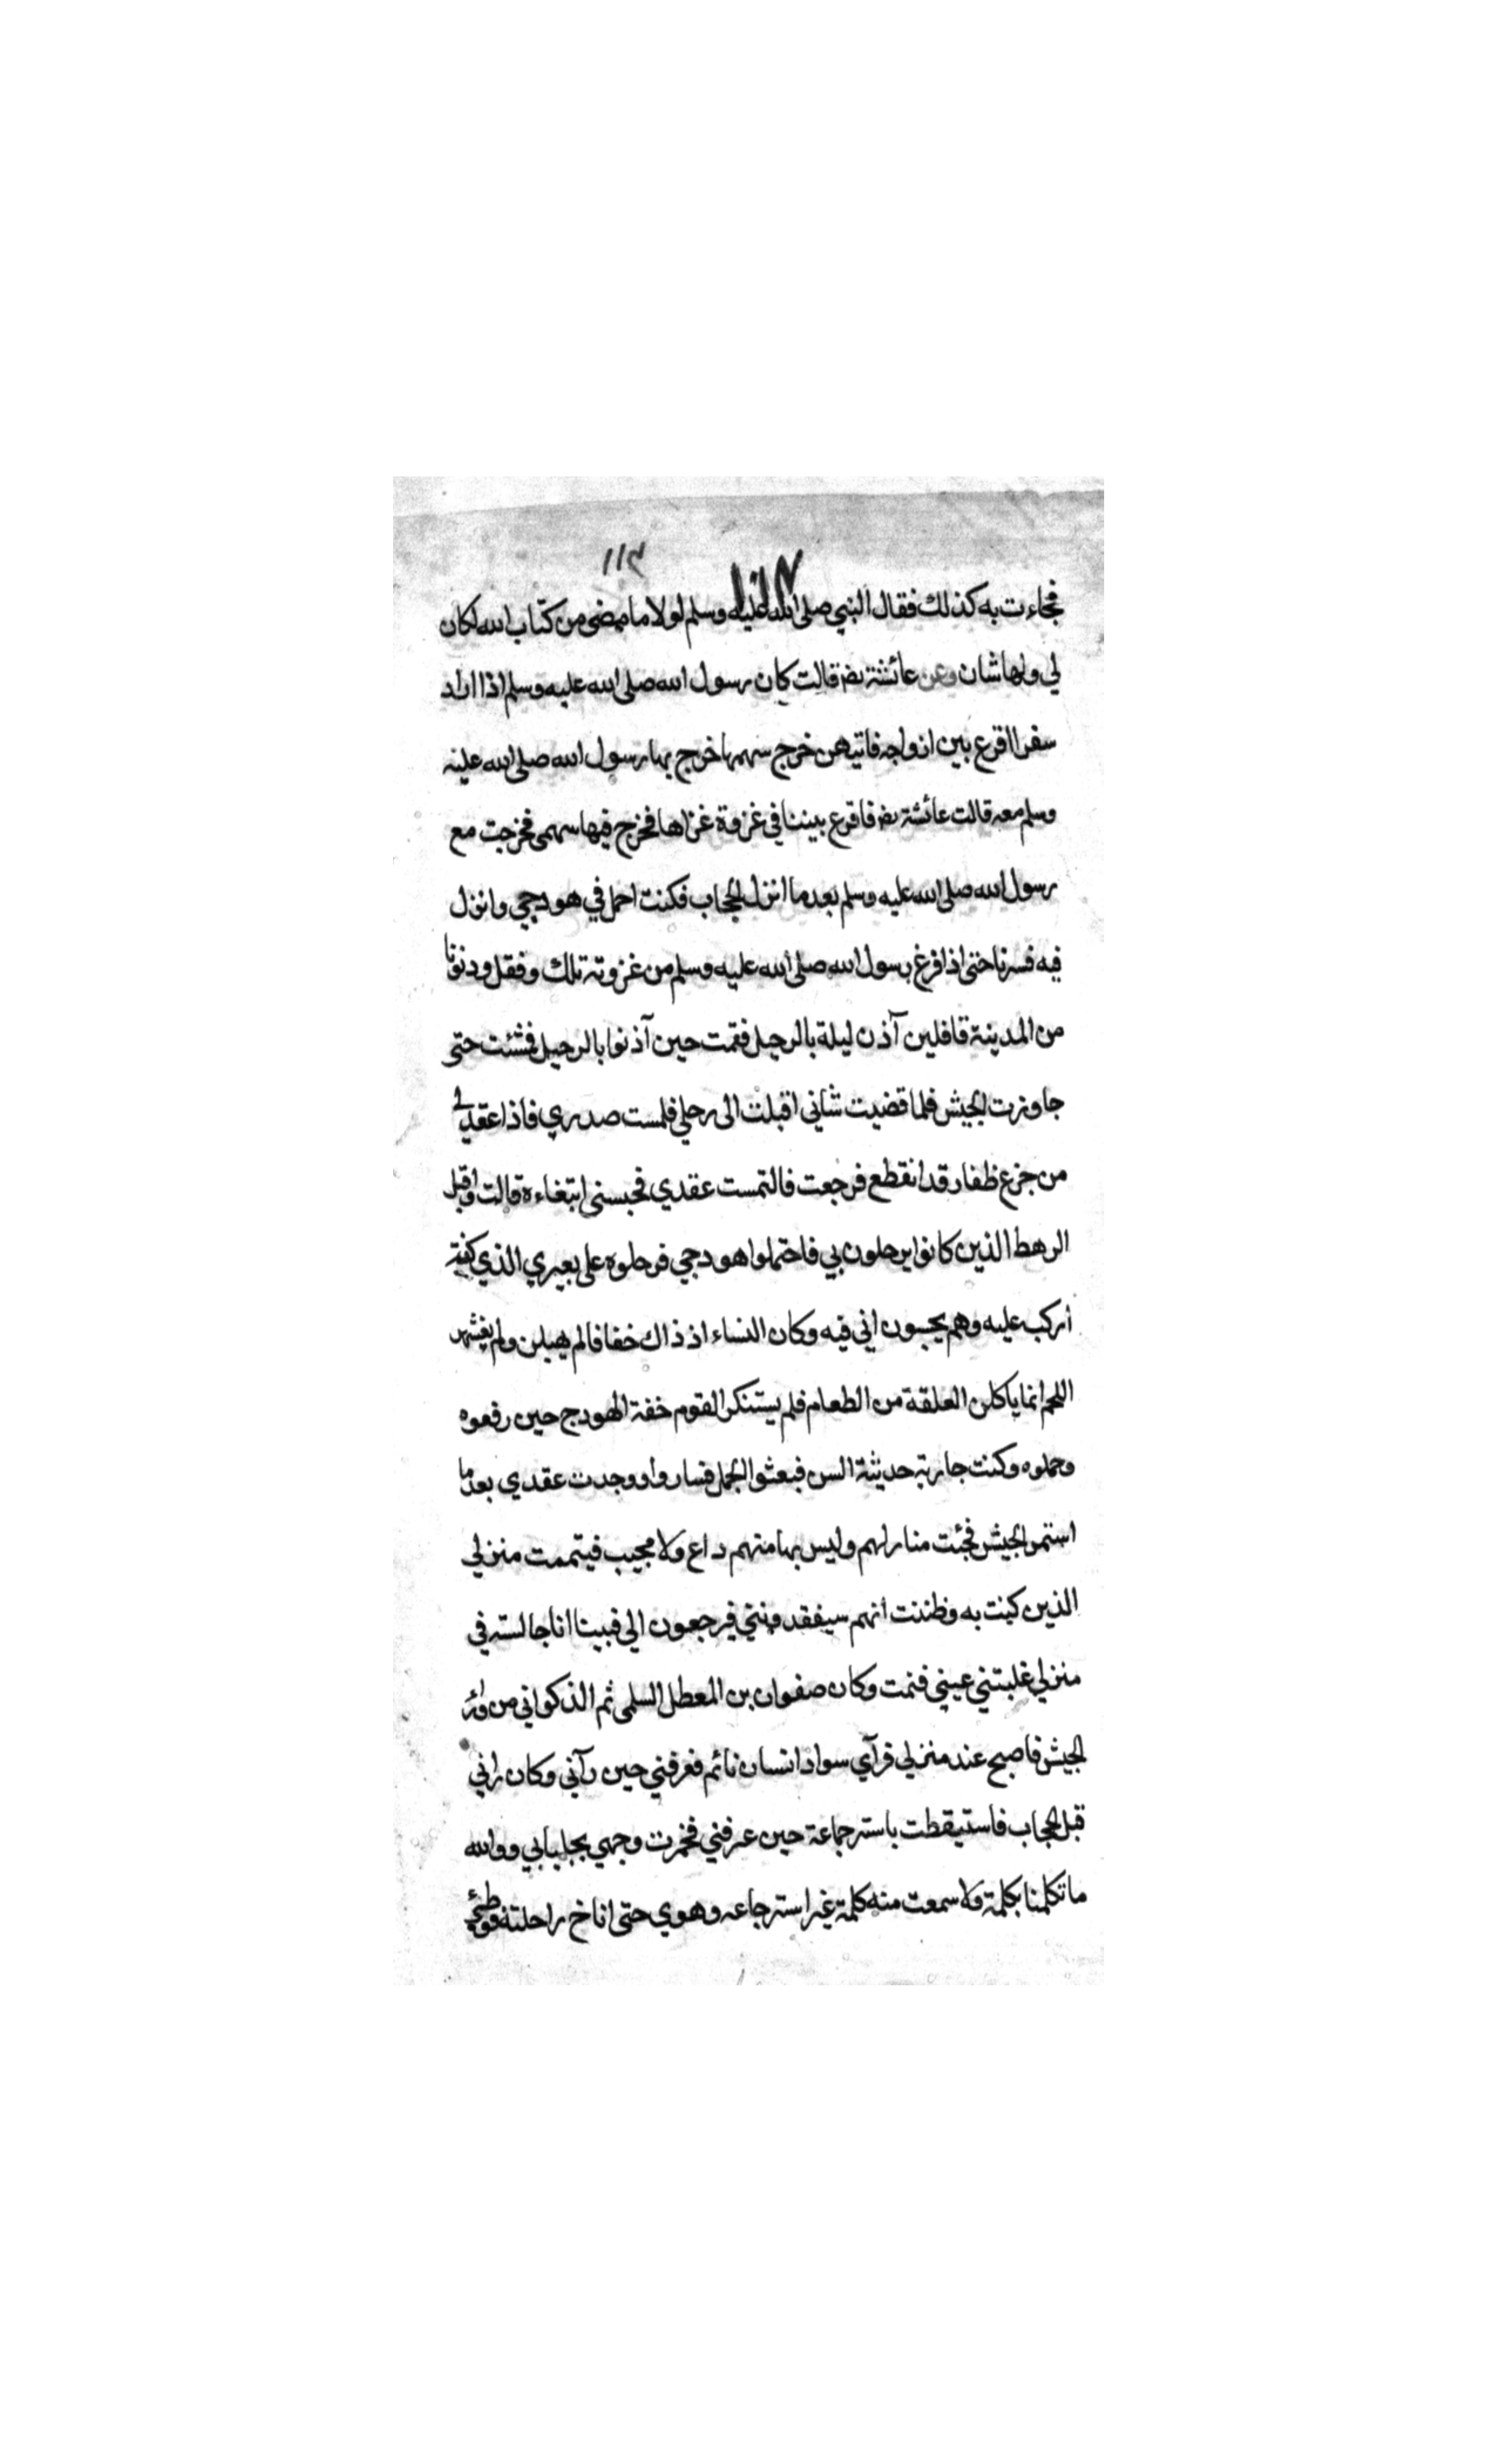 ١١٣
فجاءت به كذلك فقال النبي صلى الله عليه وسلم لولا ما مضى من كتاب الله لكان
لي ولها شان وعن عائشة رضـ قالت كان رسول الله صلى الله عليه وسلم اذا اراد
سفرا اقرع بين ازواجه فايتهن خرج سهمها خرج بها رسول الله صلى الله عليه
وسلم معه قالت عائشة رضـ فاقرع بيننا في غزوة غزاها فخرج فيها سهمى فخرجت مع
رسول الله صلى الله عليه وسلم بعد ما انزل الحجاب فكنت احمل في هودجي وانزل
فيه فسرنا حتى اذا فرغ رسول الله صلى الله عليه وسلم من غزوته تلك وفقل ودنونا
من المدينة قافلين آذن ليلة بالرحيل فقمت حين آذنوا بالرحيل فمشئت حتى
جاوزت الجيش فلما قضيت شانى اقبلت الى رحلي فلمست صدري فاذا عقد لي
من جزع ظفار قد انقطع فرجعت فالتمست عقدي فحبسنى ابتغاءه قالت واقبل
الرهط الذين كانوا يرحلون بي فاحتملوا هودجي فرحلوه على بعيري الذي كنت
اركب عليه وهم يحسبون اني فيه وكان النساء اذ ذاك خفافا لم يهبلن ولم يغشهن
اللحم انما ياكلن العلقة من الطعام فلم يستنكر القوم خفة الهودج حين رفعوه
وحملوه وكنت جارية حديثة السن فبعثوا الجمل فساروا ووجدت عقدي بعد ما
استمر الجيش فجئت منازلهم وليس بها منهم داع ولا مجيب فيتممت منزلي
الذين كنت به وظننت انهم سيفقدونني فيرجعون الي فبينا انا جالسة في
منزلي غلبتني عيني فنمت وكان صفوان بن المعطل السلمى ثم الذكواني من وراء
الجيش فاصبح عند منزلي فرآي سواد انسان نائم فعرفني حين رآني وكان راني
قبل الحجاب فاستيقظت باسترجاعة حين عرفني فخمرت وجهي بجلبابي ووالله
ما تكلمنا بكلمة ولا سمعت منه كلمة غير استرجاعه وهوي حتى اناخ راحلتة فوطئ